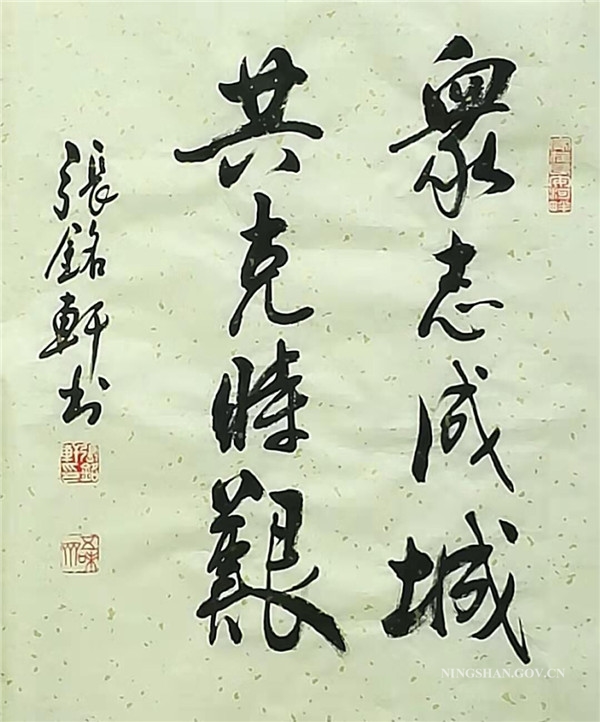 眾志成城
共克時艱
張銘軒书
NINGSHAN.GOV.CN